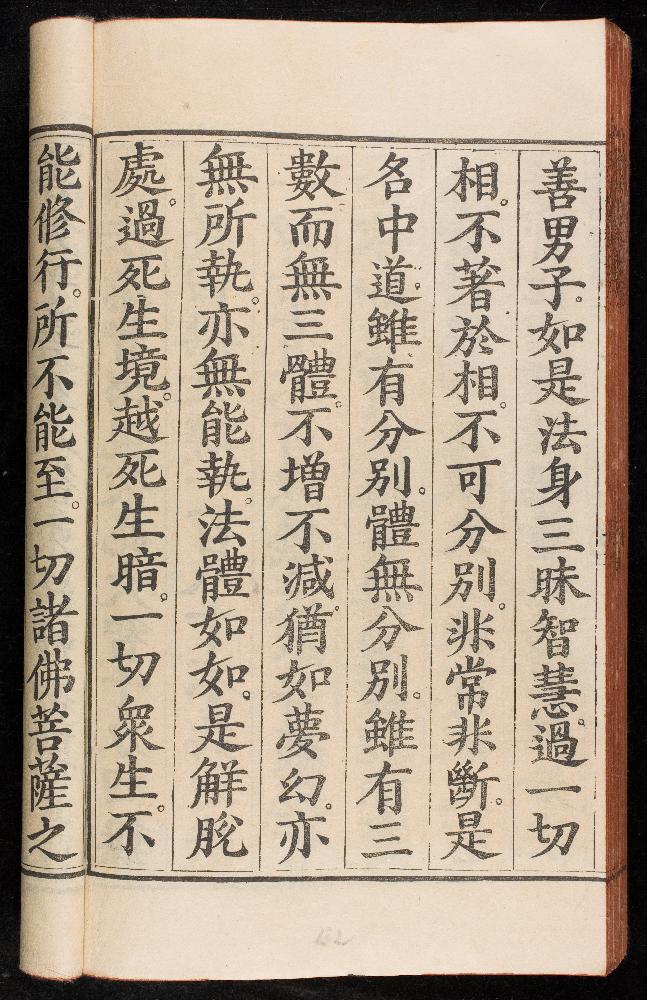 善男子。如是法身三昧智慧。過一切
相。不著於相。不可分別。非常非斷。是
名中道。雖有分別。體無分別。雖有三
數而無三體。不增不減。猶如夢幻。亦
無所執。亦無能執。法體如如。是解脫
處。過死生境。越死生暗。一切衆生。不
能修行。所不能至。一切諸佛菩薩之
132